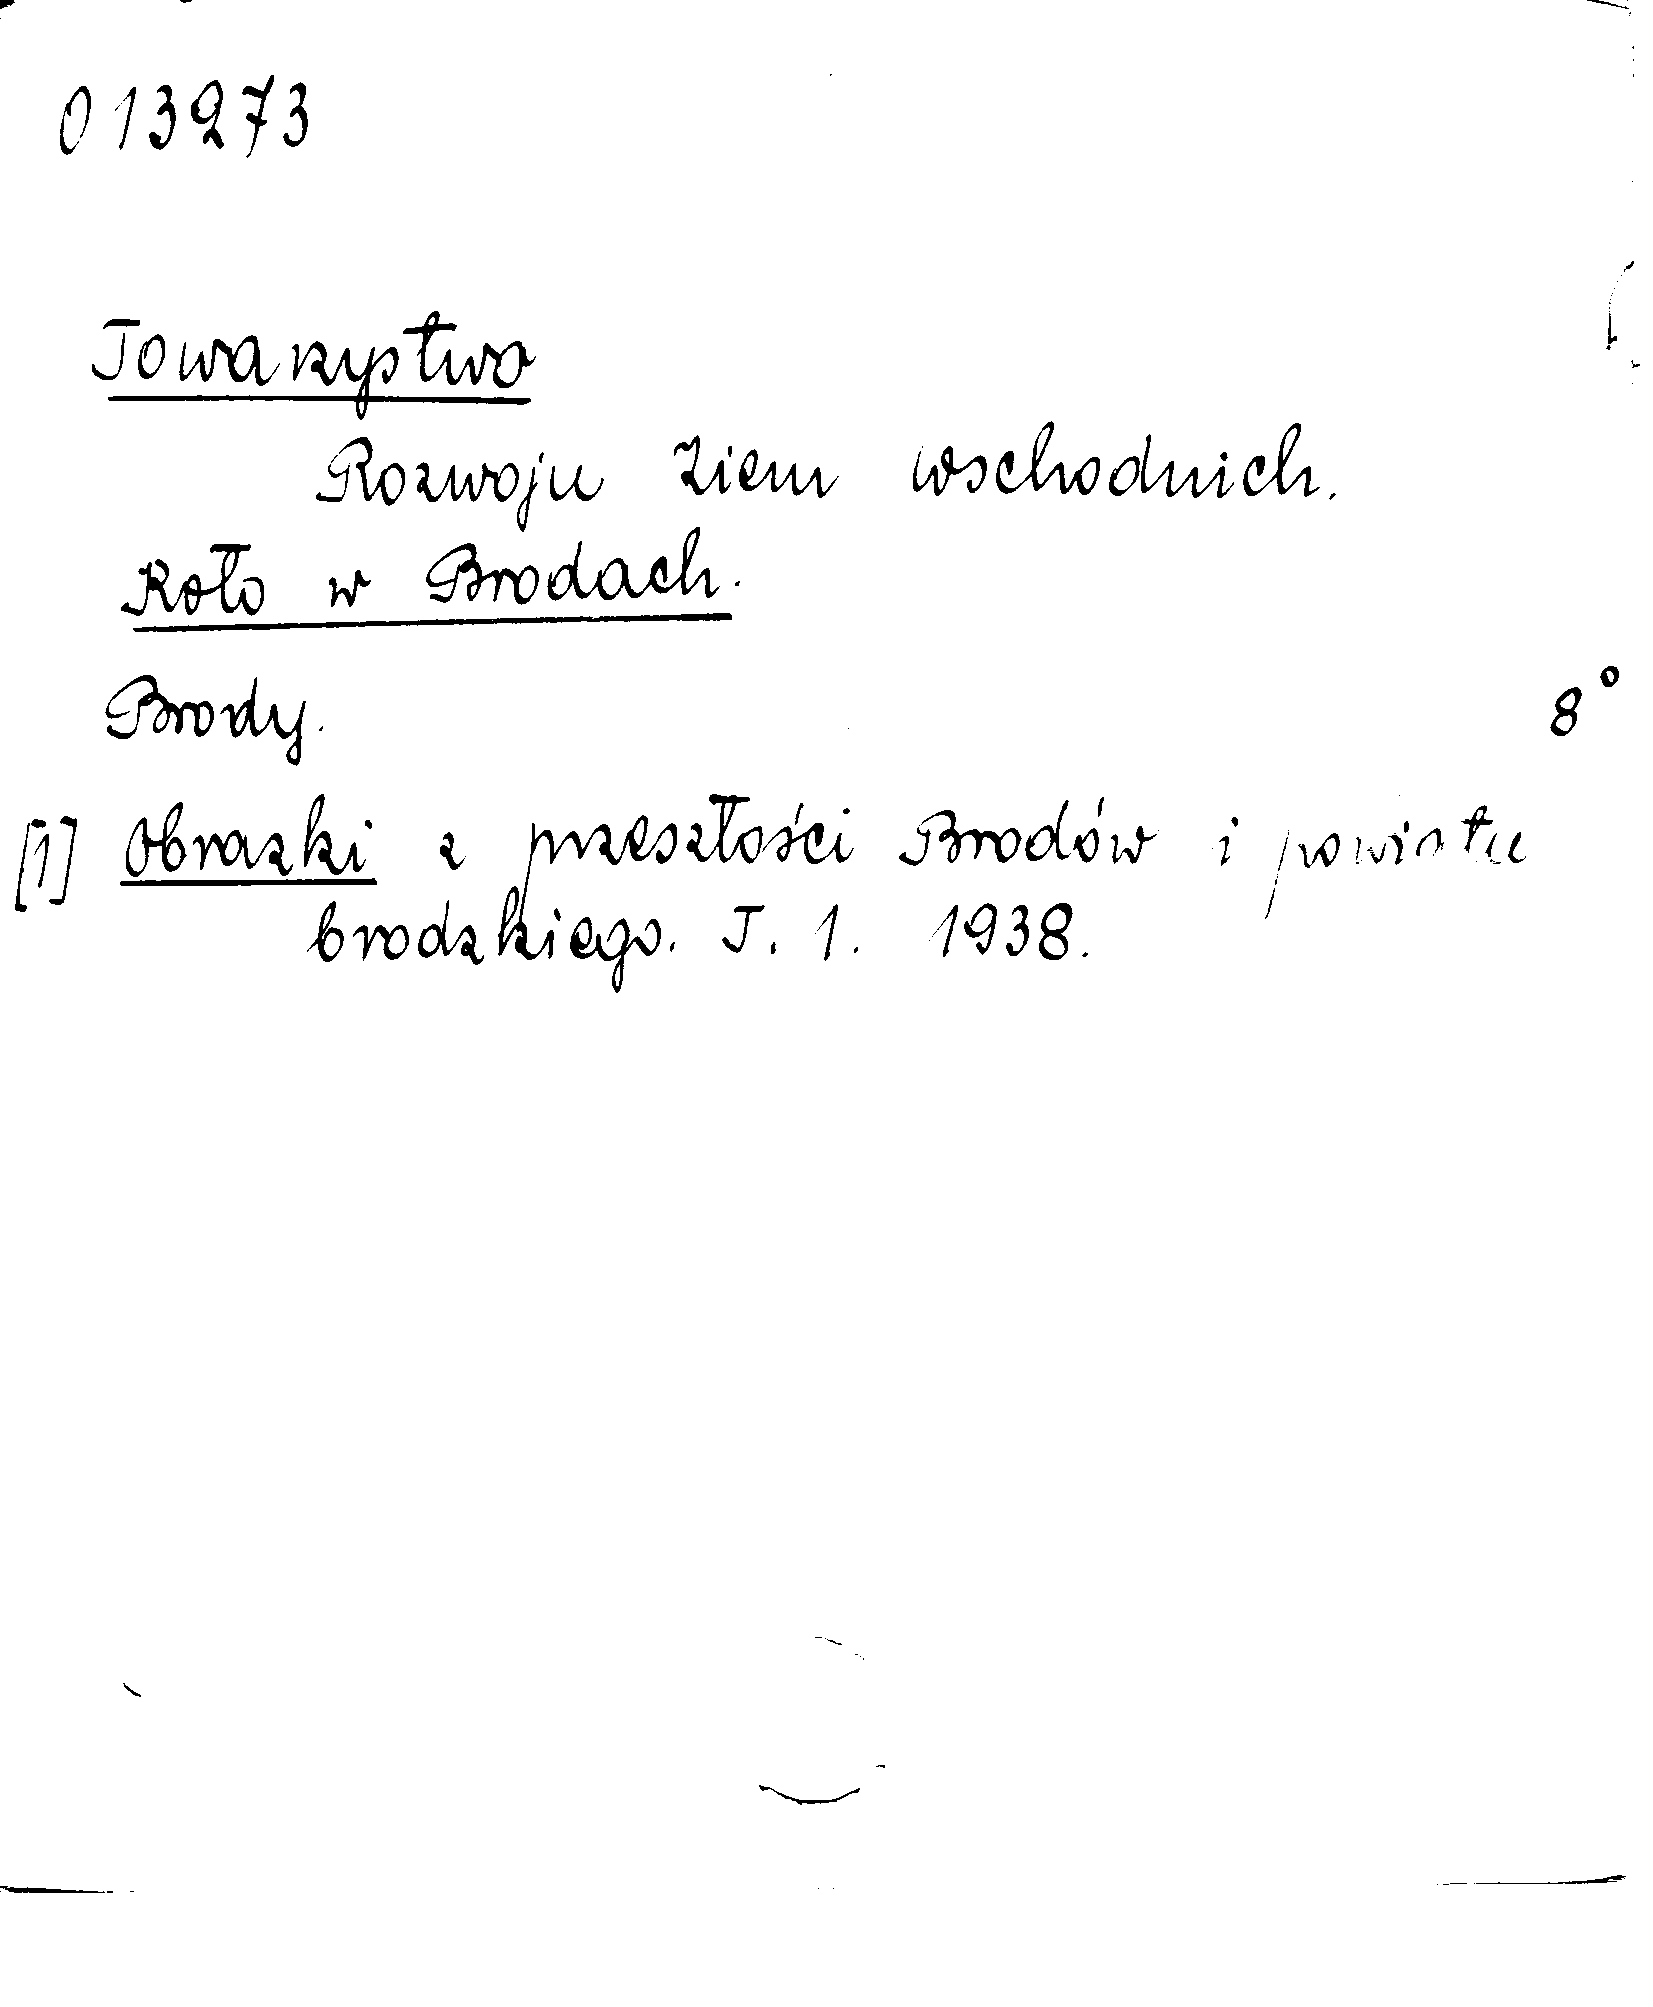 013273
Towarzystwo
Rozwoju Ziem wschodnich.
Koło w Brodach.
Brody. 8°
[1] Obrazki z przeszłości Brodów i powiatu
brodzkiego. T. 1. 1938.